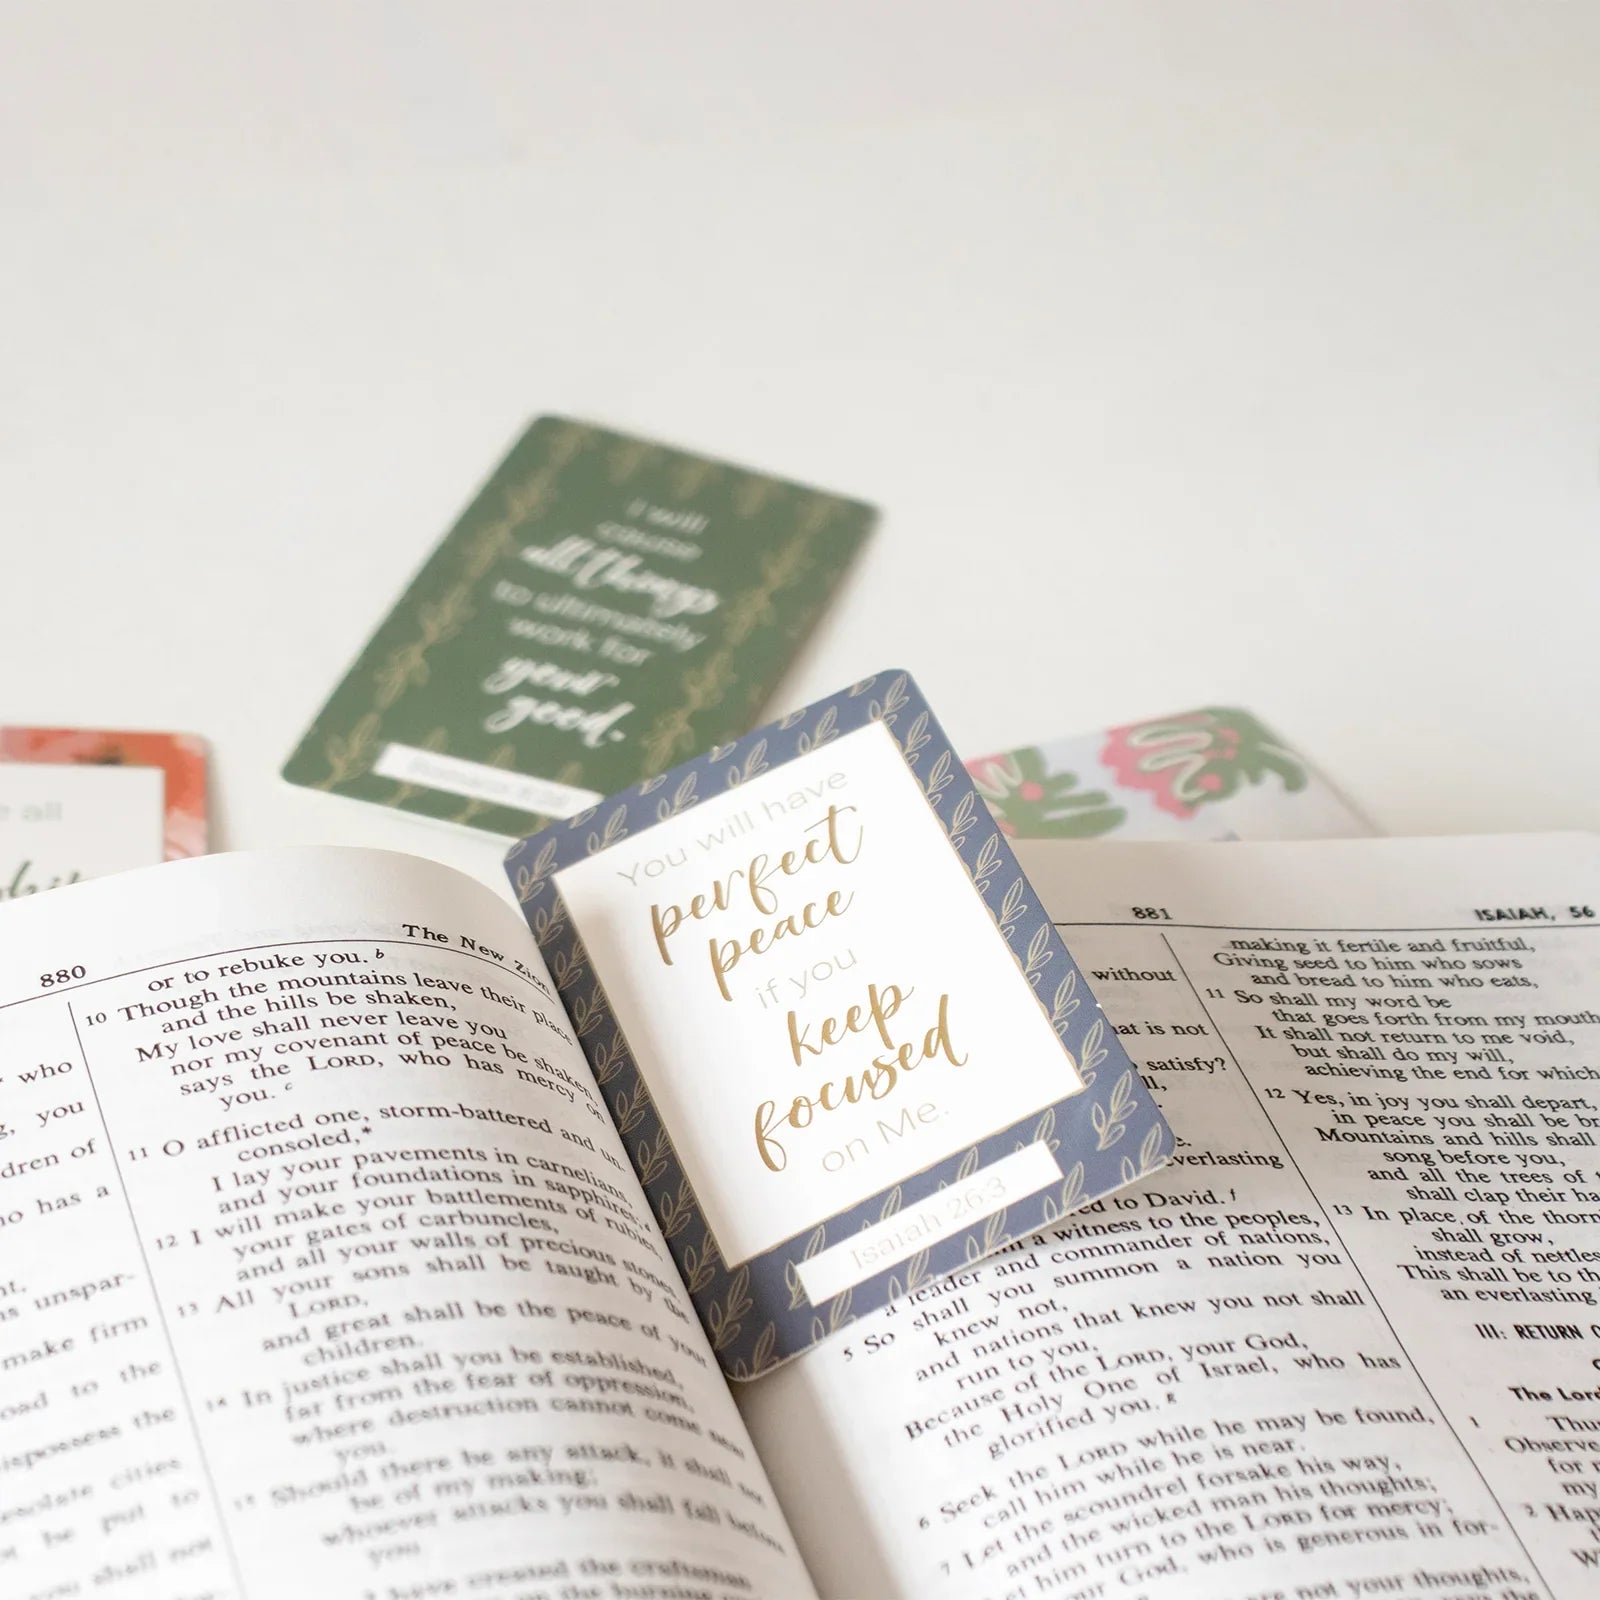 I will
cause
all things
to ultimately
work for
your
good.
all
You will have
perfect
peace
if you
keep
focused
on Me.
Isaiah 26:3
880
The New
or to rebuke you. b
10 Though the mountains leave their place
and the hills be shaken,
My love shall never leave you
nor my covenant of peace be shaken,
says the LORD, who has mercy on
you. c
11 O afflicted one, storm-battered and un-
consoled,*
I lay your pavements in carnelians,
and your foundations in sapphires, *
12 I will make your battlements of rubies,
your gates of carbuncles,
and all your walls of precious stones.
13 All your sons shall be taught by the
LORD,
and great shall be the peace of your
children.
14 In justice shall you be established,
far from the fear of oppression,
where destruction cannot come near
you.
15 Should there be any attack, it shall not
be of my making;
whoever attacks you shall fall before
you
have created the craftsman
the burning
who
you
dren of
ho has a
unspar-
make firm
to the
the
cities
be put to
shall not
881
ISAIAH, 56
without
is not
satisfy?
everlasting
to David. f
a witness to the peoples,
a leader and commander of nations,
5 So shall you summon a nation you
knew not,
and nations that knew you not shall
run to you,
Because of the LORD, your God,
the Holy One of Israel, who has
glorified you. g
6 Seek the LORD while he may be found,
call him while he is near.
7 Let the scoundrel forsake his way,
and the wicked man his thoughts;
him turn to the LORD for mercy;
our God, who is generous in for-
are not your thoughts,
making it fertile and fruitful,
Giving seed to him who sows
and bread to him who eats,
11 So shall my word be
that goes forth from my mouth
It shall not return to me void,
but shall do my will,
achieving the end for which
12 Yes, in joy you shall depart,
in peace you shall be
Mountains and hills shall
song before you,
and all the trees of
shall clap their
13 In place of the
shall grow,
instead of
This shall be to
an everlasting
III: RETURN
The
1
Observe
for
my
2